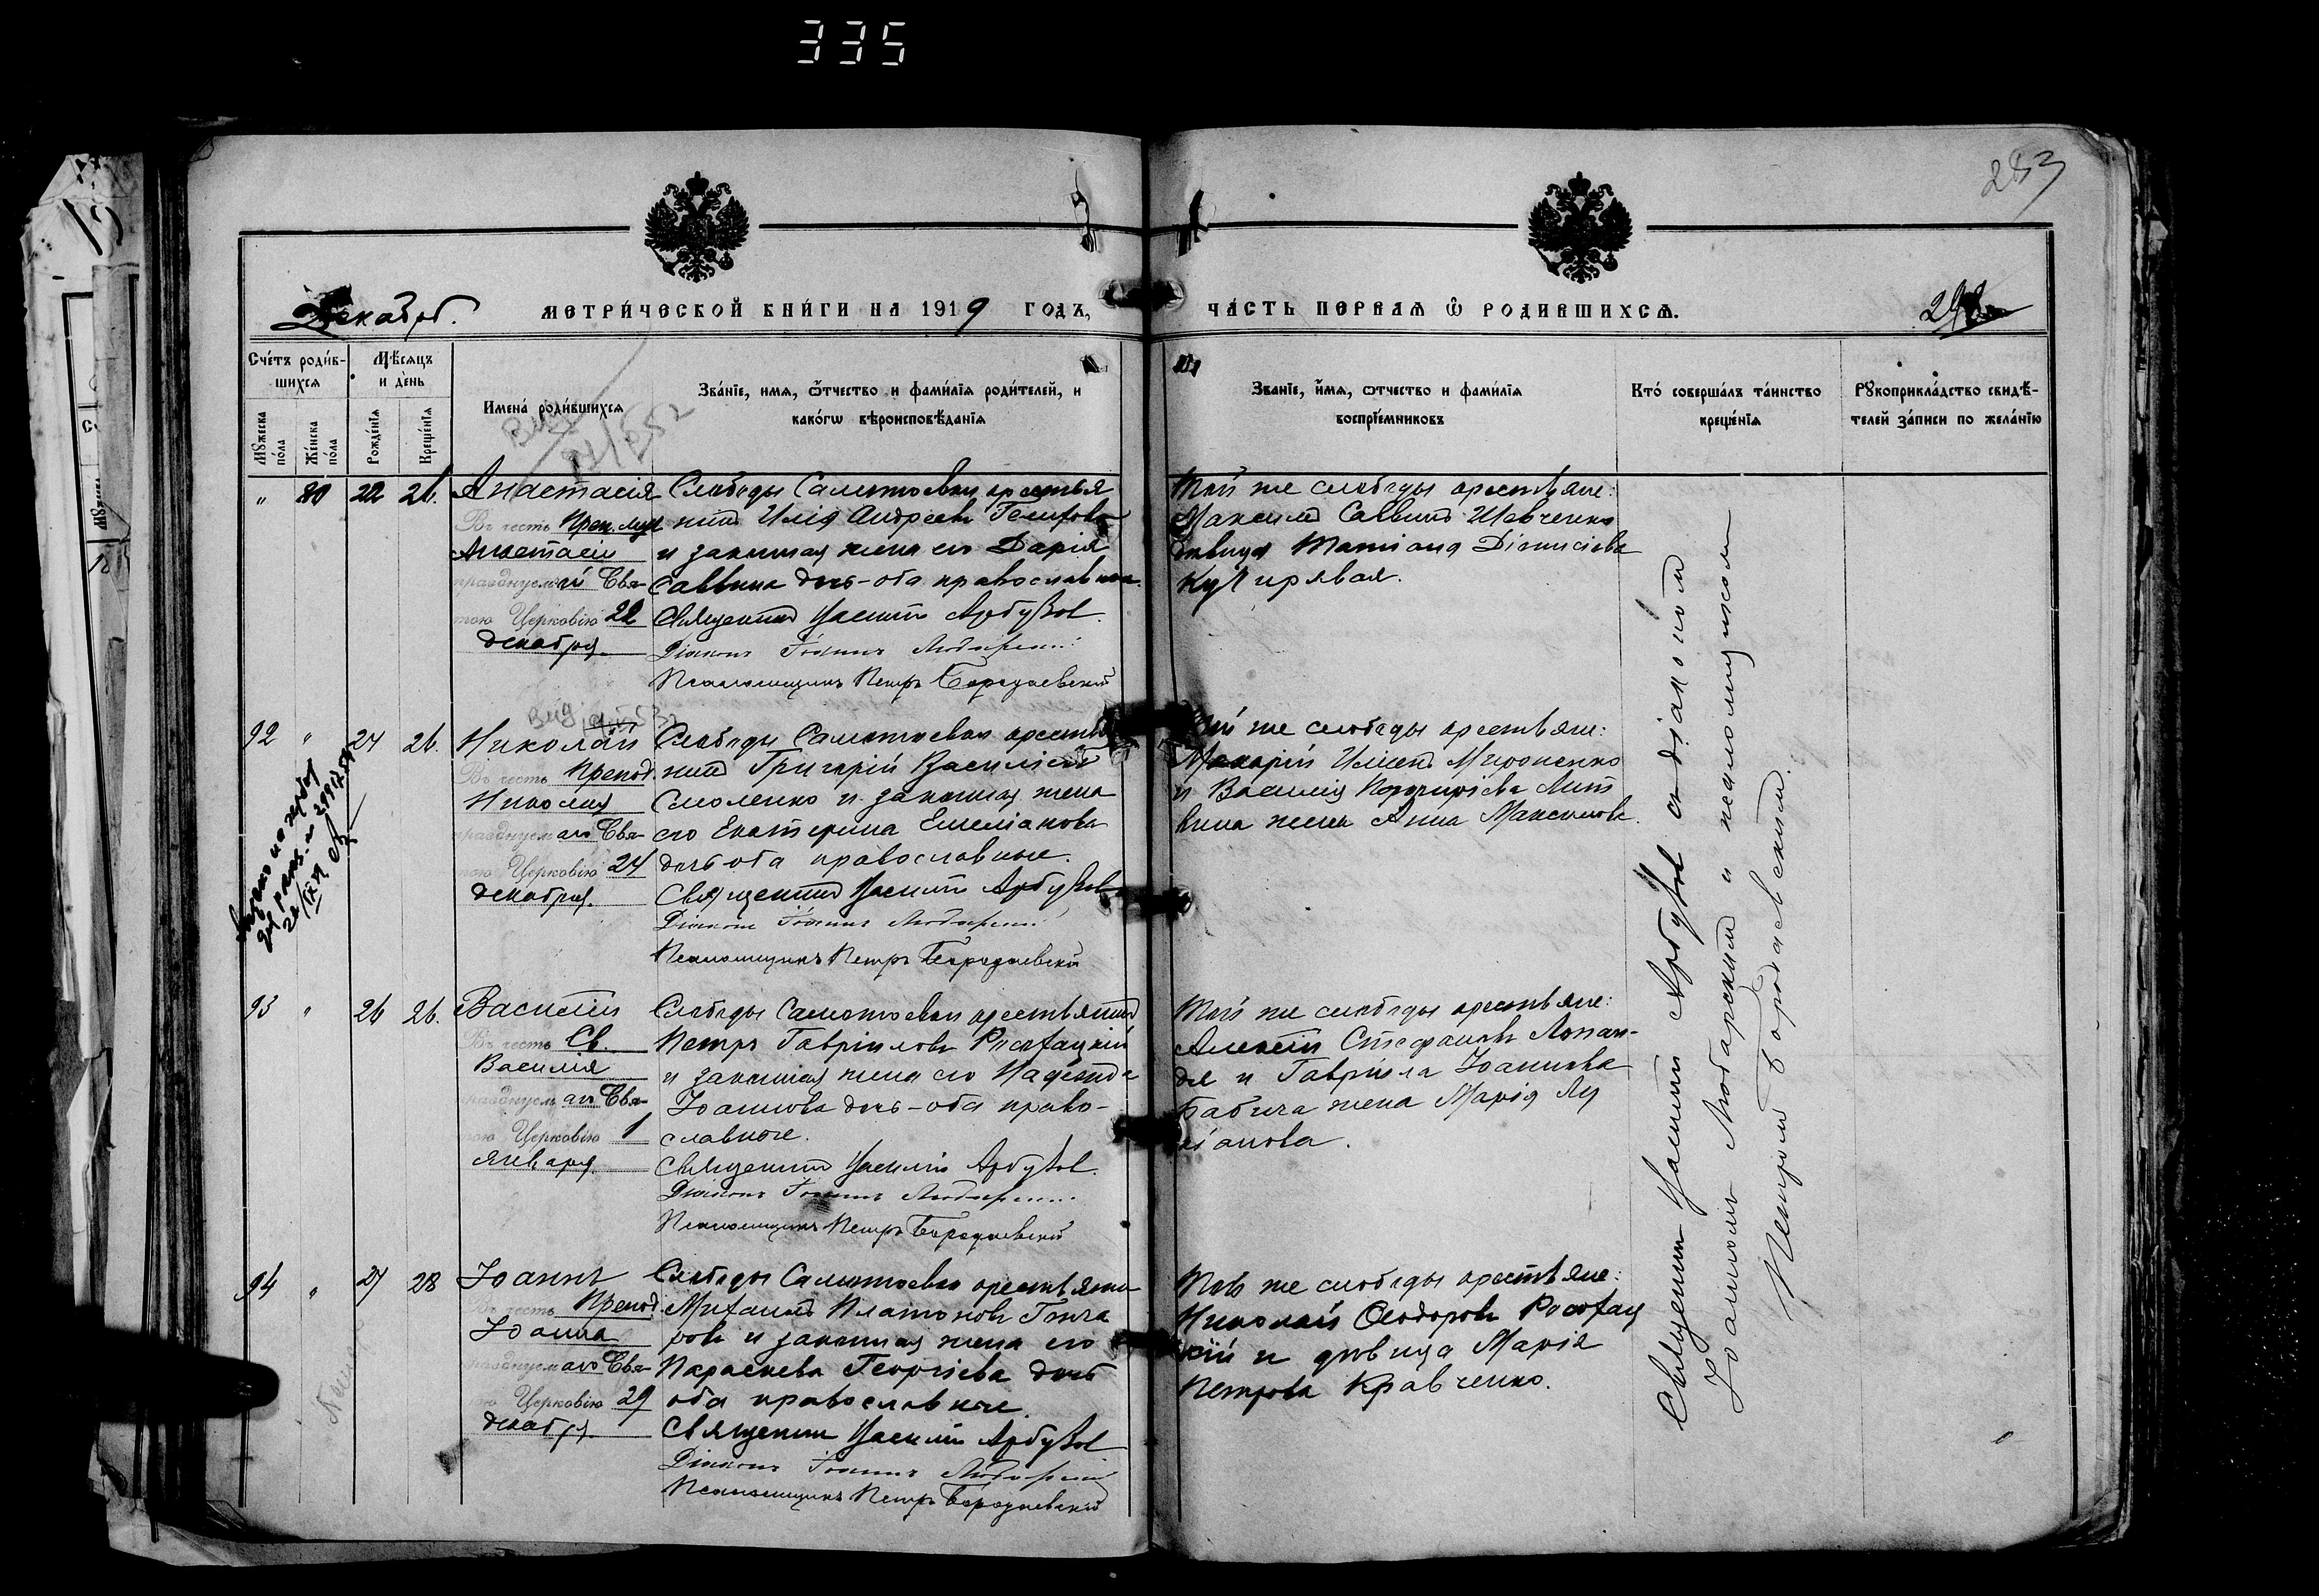 335
283
Декабр.
МЕТРИ́ЧЕСКОЙ КНИ́ГИ НА 1919 ГОДЪ,
ЧА́СТЬ ПЕРВАѦ Ѿ РОДИВШИХСѦ.
Сче́тъ роди́в-
шихся
Мѣ́сяцъ
и де́нь
Мꙋжеска по́ла
Же́нска по́ла
Рожде́нїѧ
Креще́нїѧ
Имена́ роди́вшихся
Зва́нїе, имѧ, ѻ́тчество и фами́лїѧ роди́телей, и
како́гѡ вѣроисповѣ́данїѧ
Зва́нїе, и́мѧ, ѻтчество и фами́лїѧ
воспрїе́мниковъ
Кто́ соверша́лъ та́инство
креще́нїѧ
Рꙋкоприкла́дство свидѣ́-
телей за́писи по жела́нїю
" 80 22 26. Анастасія
Въ честь Преп. муч
Анастасіи
празднуемой Свя-
тою Церковію 22
декабря.
Слободы Самотоевки крестья
нинъ Илія Андреевъ
и законная жена его Дарія
Саввина дочь - оба православные.
Священникъ Василій Арбузов.
Діаконъ Іоаннъ Любарскій
Псаломщикъ Петръ Бородаевскій
Той же слободы крестьяне:
Максимъ Саввинъ Шевченко
девица Татіана Діонисіева
92 " 24 26. Николай
Въ честь Препод.
Николая
празднуемаго Свя-
тою Церковію 24
декабря.
Слободы Самотоевки крестья
нинъ Григорій Василіевъ
Смоленко и законная жена
его Екатерина Емеліанова
дочь оба православные.
Священникъ Василій Арбузов
Діаконъ Іоаннъ Любарскій
Псаломщикъ Петръ Бородаевскій
Той же слободы крестьяне:
Макарій Иліинъ Мироненко
и Василія Порфиріева Лит
вина жена Анна Максимова.
93 " 26 26. Василій
Въ честь Св.
Василія
празднуемаго Свя-
тою Церковію 1
января.
Слободы Самотоевки крестьянинъ
Петръ Гавріиловъ Росохацкій
и законная жена его Надежда
Іоаннова дочь - оба право-
славные.
Священникъ Василій Арбузов.
Діаконъ Іоаннъ Любарскій
Псаломщикъ Петръ Бородаевскій
Той же слободы крестьяне:
Алексій Стефановъ
и Гавріила Іоаннова
Бабича жена Марія Лу
кіанова.
94 " 27 28 Іоаннъ
Въ честь Препод.
Іоанна
празднуемаго Свя-
тою Церковію 29
декабря.
Слободы Самотоевки крестьянинъ
Михаилъ Платоновъ Гонча
ровъ и законная жена его
Параскева Георгіева дочь
оба православные.
Священникъ Василій Арбузов
Діаконъ Іоаннъ Любарскій
Псаломщикъ Петръ Бородаевскій
Той же слободы крестьяне:
Николай Ѳеодоровъ Росохац
кій и девица Марія
Петрова Кравченко.
Священникъ Василій Арбузов съ діакономъ
Іоанномъ Любарскимъ и псаломщикомъ
Петромъ Бородаевскимъ.